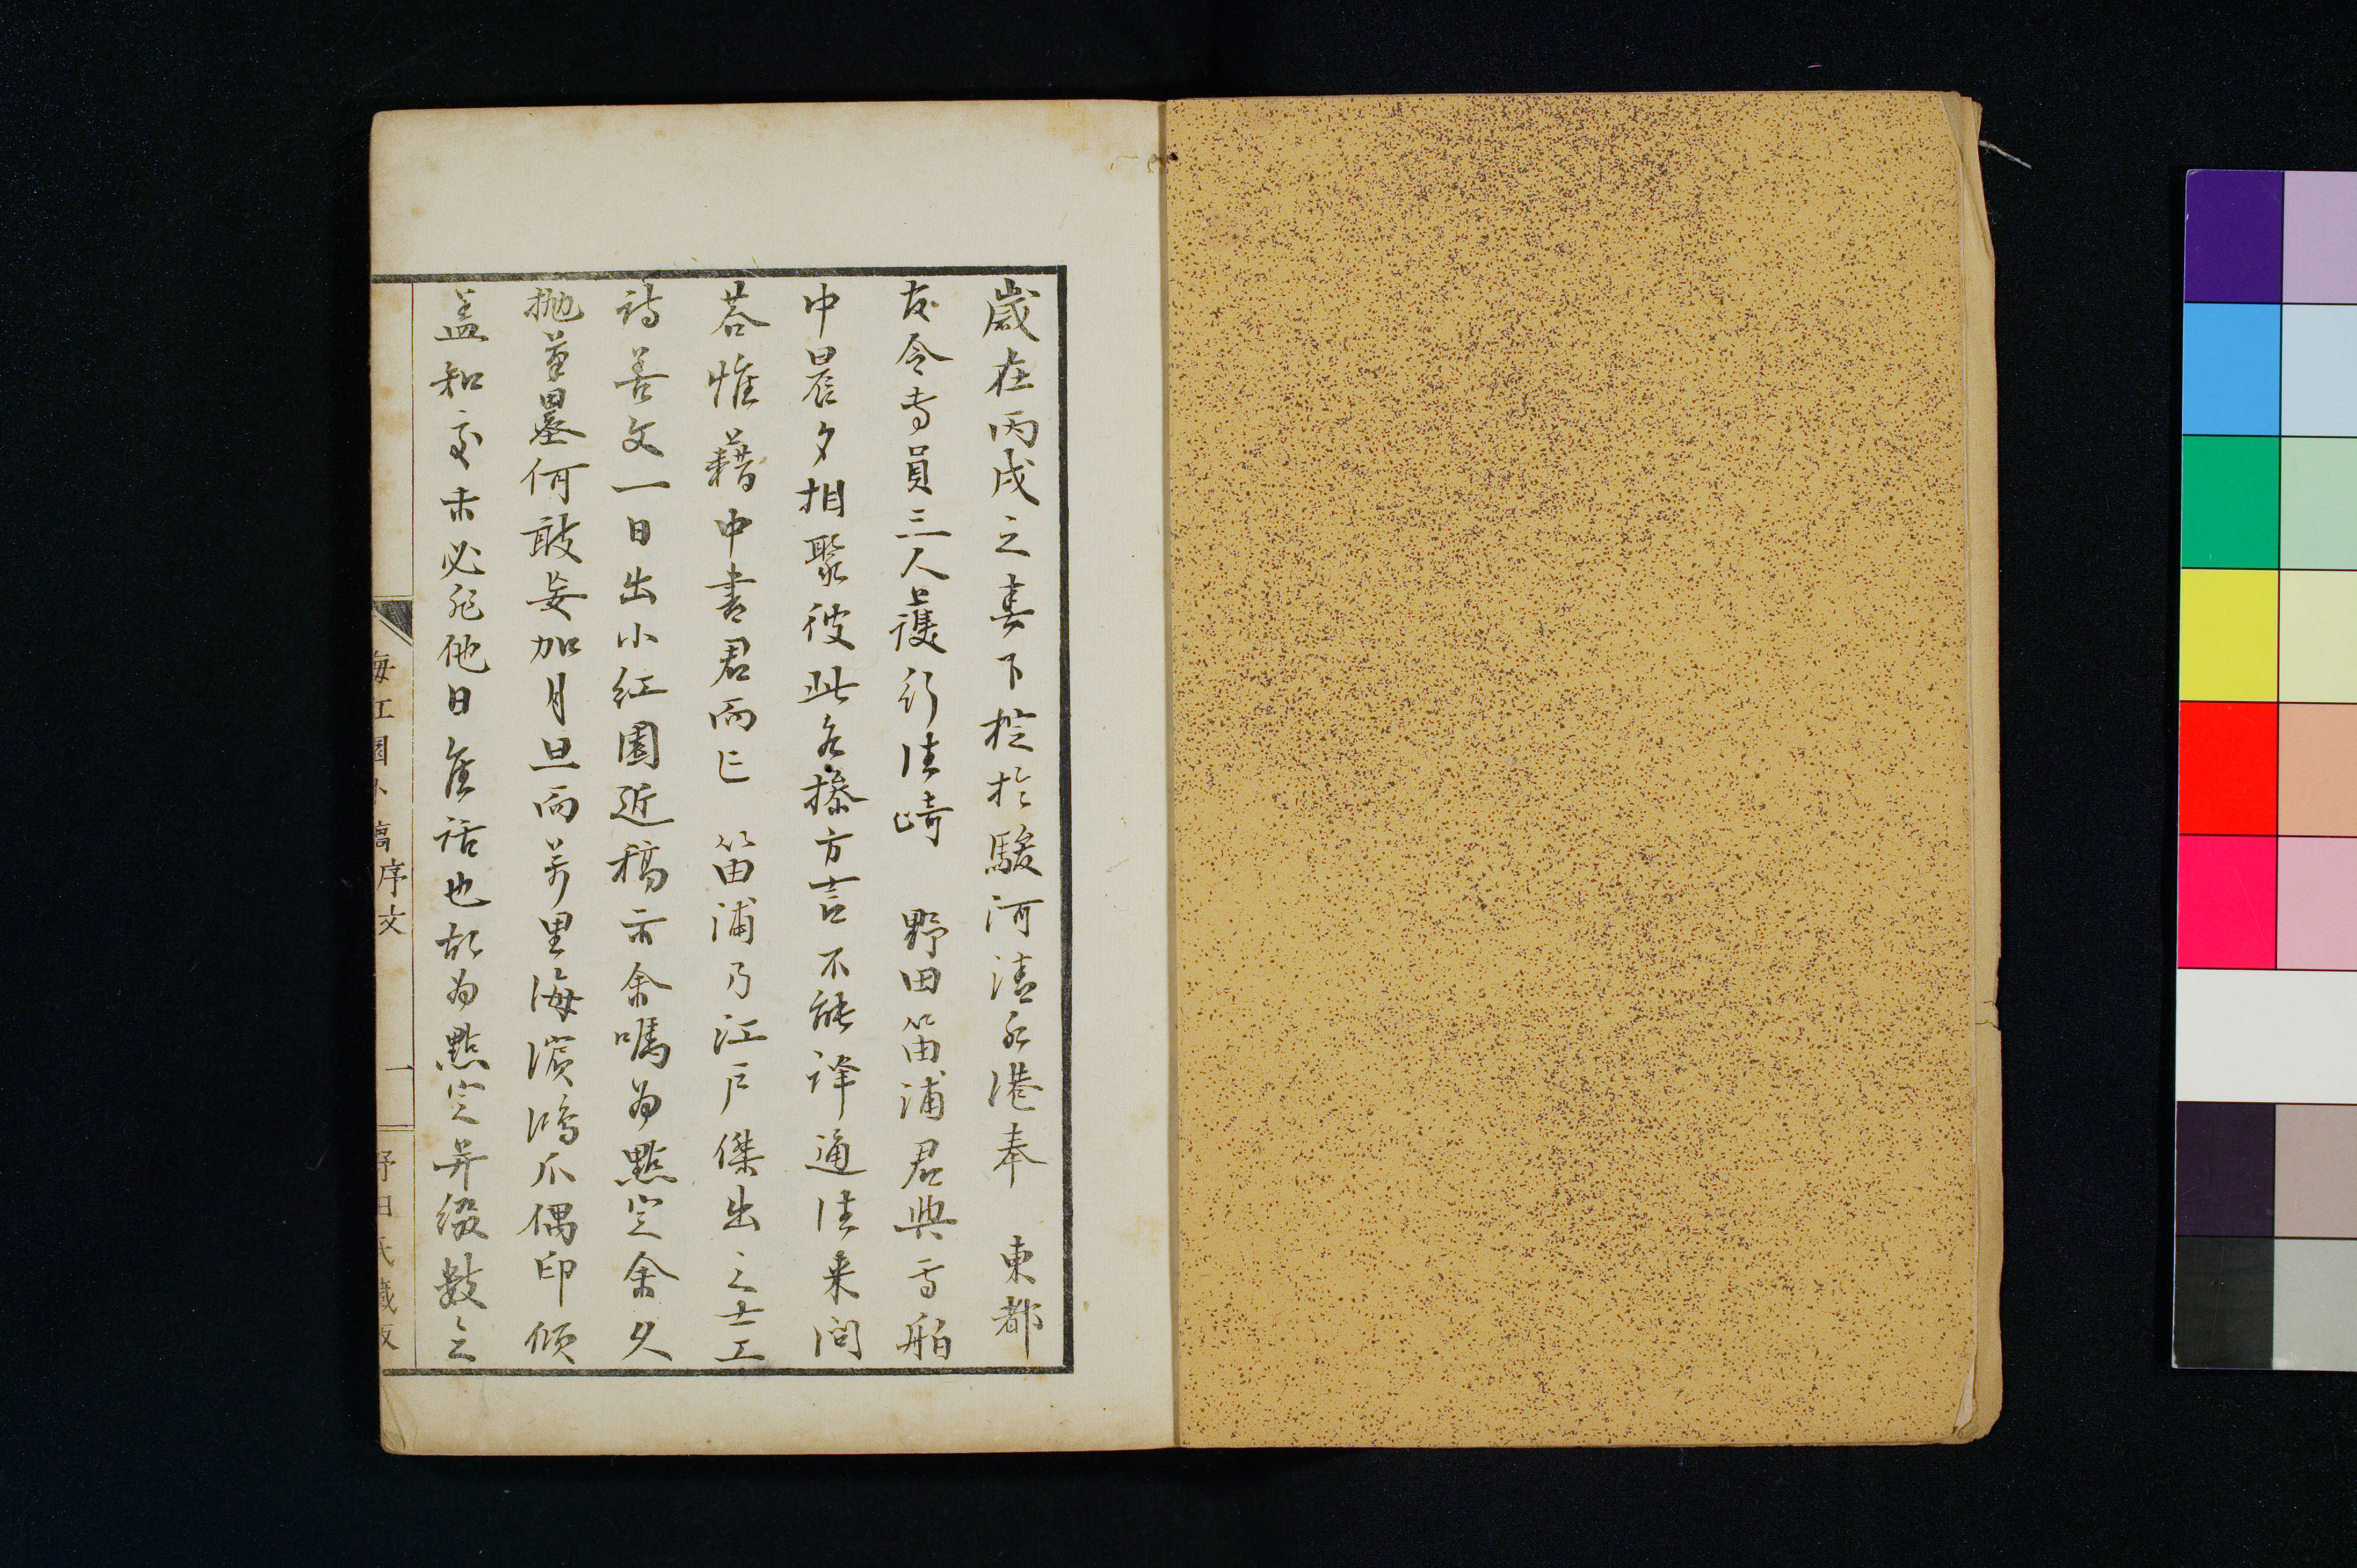 歲在丙戌之春下椗於駿河清水港奉　東都
友令寺員三人護行往崎　野田笛浦君與焉舶
中晨夕相聚彼此各操方言不能譯通往来問
荅惟藉中書君而已　笛浦乃江戶傑出之士工
詩善文一日出小紅園近稿示余嘱為點定余久
抛筆墨何敢妄加月旦而萬里海濱鴻爪偶印傾
盖知交未必非他日隹話也故為點定并綴數言
海紅園小稿序文
一
野田氏藏板